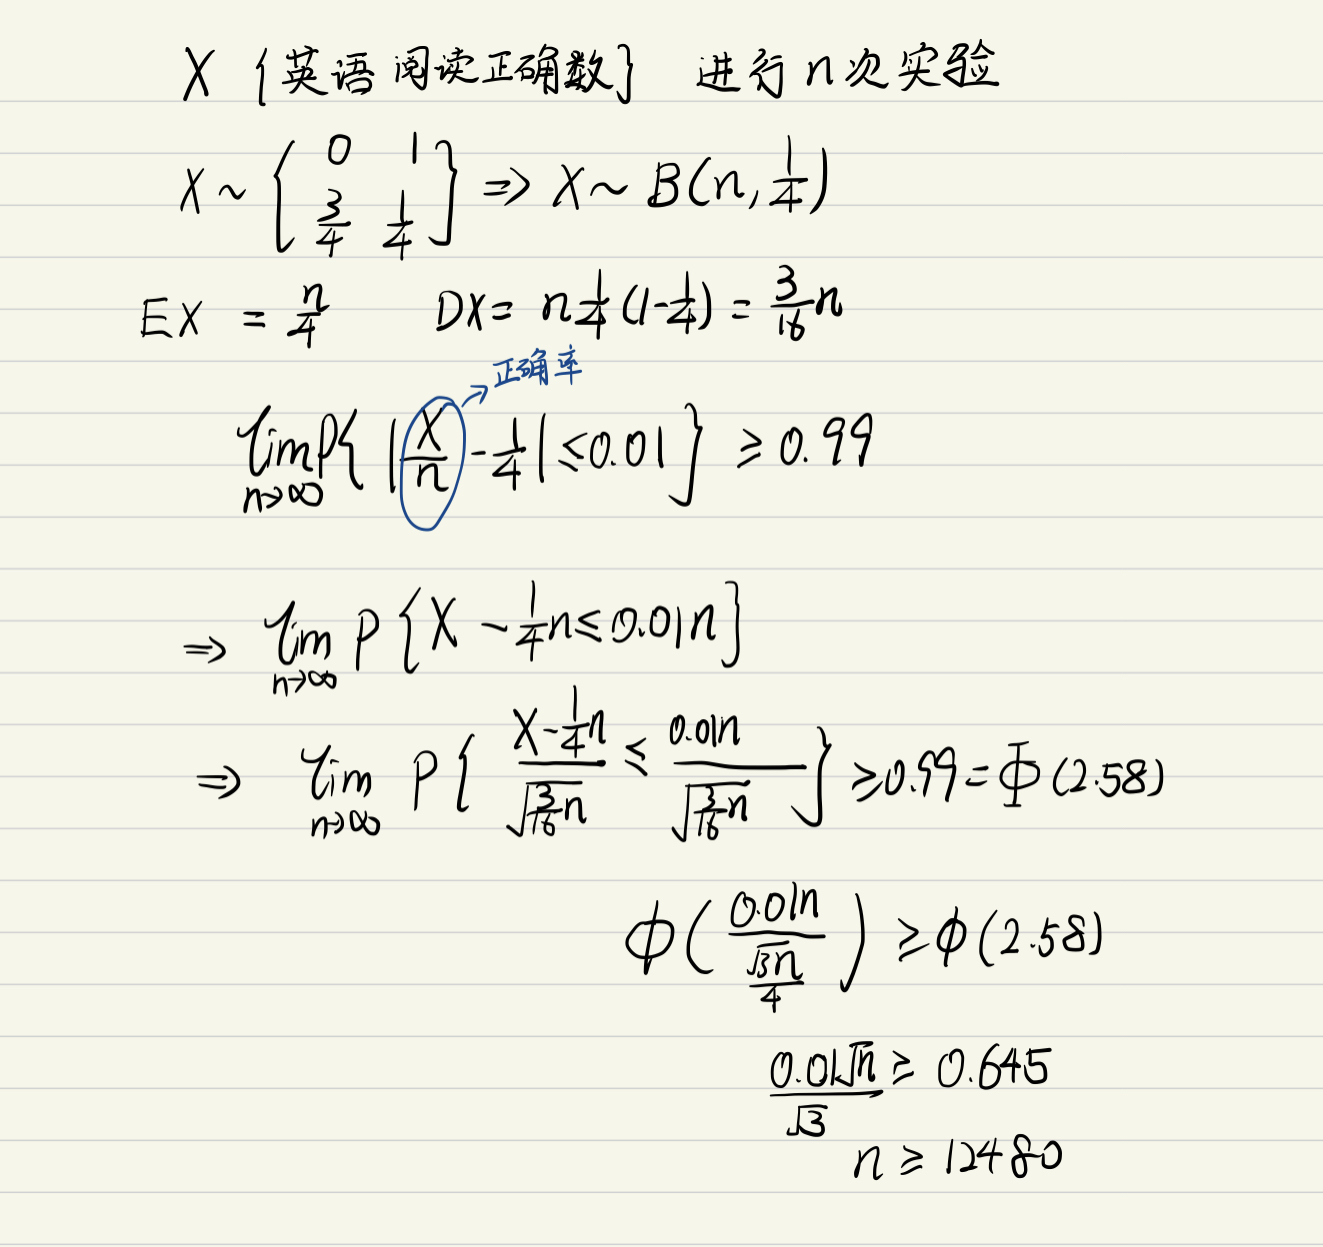 X {英语阅读正确数} 进行n次实验
X ~ { 0 1
3/4 1/4 } ⇒ X ~ B(n, 1/4)
EX = n/4 DX = n 1/4 (1-1/4) = 3/16 n
正确率
lim n→∞ P{ |X/n - 1/4| ≤ 0.01 } ≥ 0.99
⇒ lim n→∞ P{ X - 1/4 n ≤ 0.01n }
⇒ lim n→∞ P{ (X - 1/4 n)/√(3/16 n) ≤ 0.01n/√(3/16 n) } ≥ 0.99 = Φ(2.58)
Φ( 0.01n / (√3n/4) ) ≥ Φ(2.58)
0.01√n/√3 ≥ 0.645
n ≥ 12480